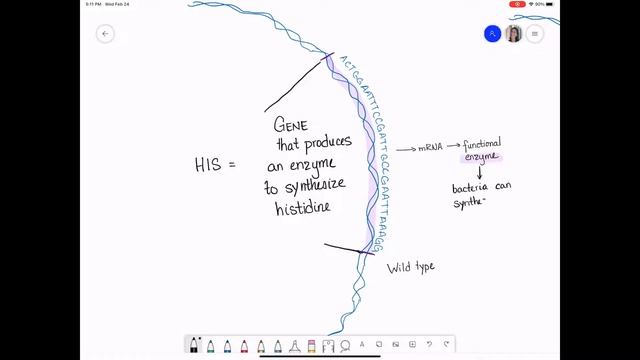 5:11 PM Wed Feb 24
90%
HIS =
GENE
that produces
an enzyme
to synthesize
histidine
ACTGGAATTTCCGATTGCCGAATTAAAGG
mRNA
functional
enzyme
bacteria can
synthe
Wild type
A